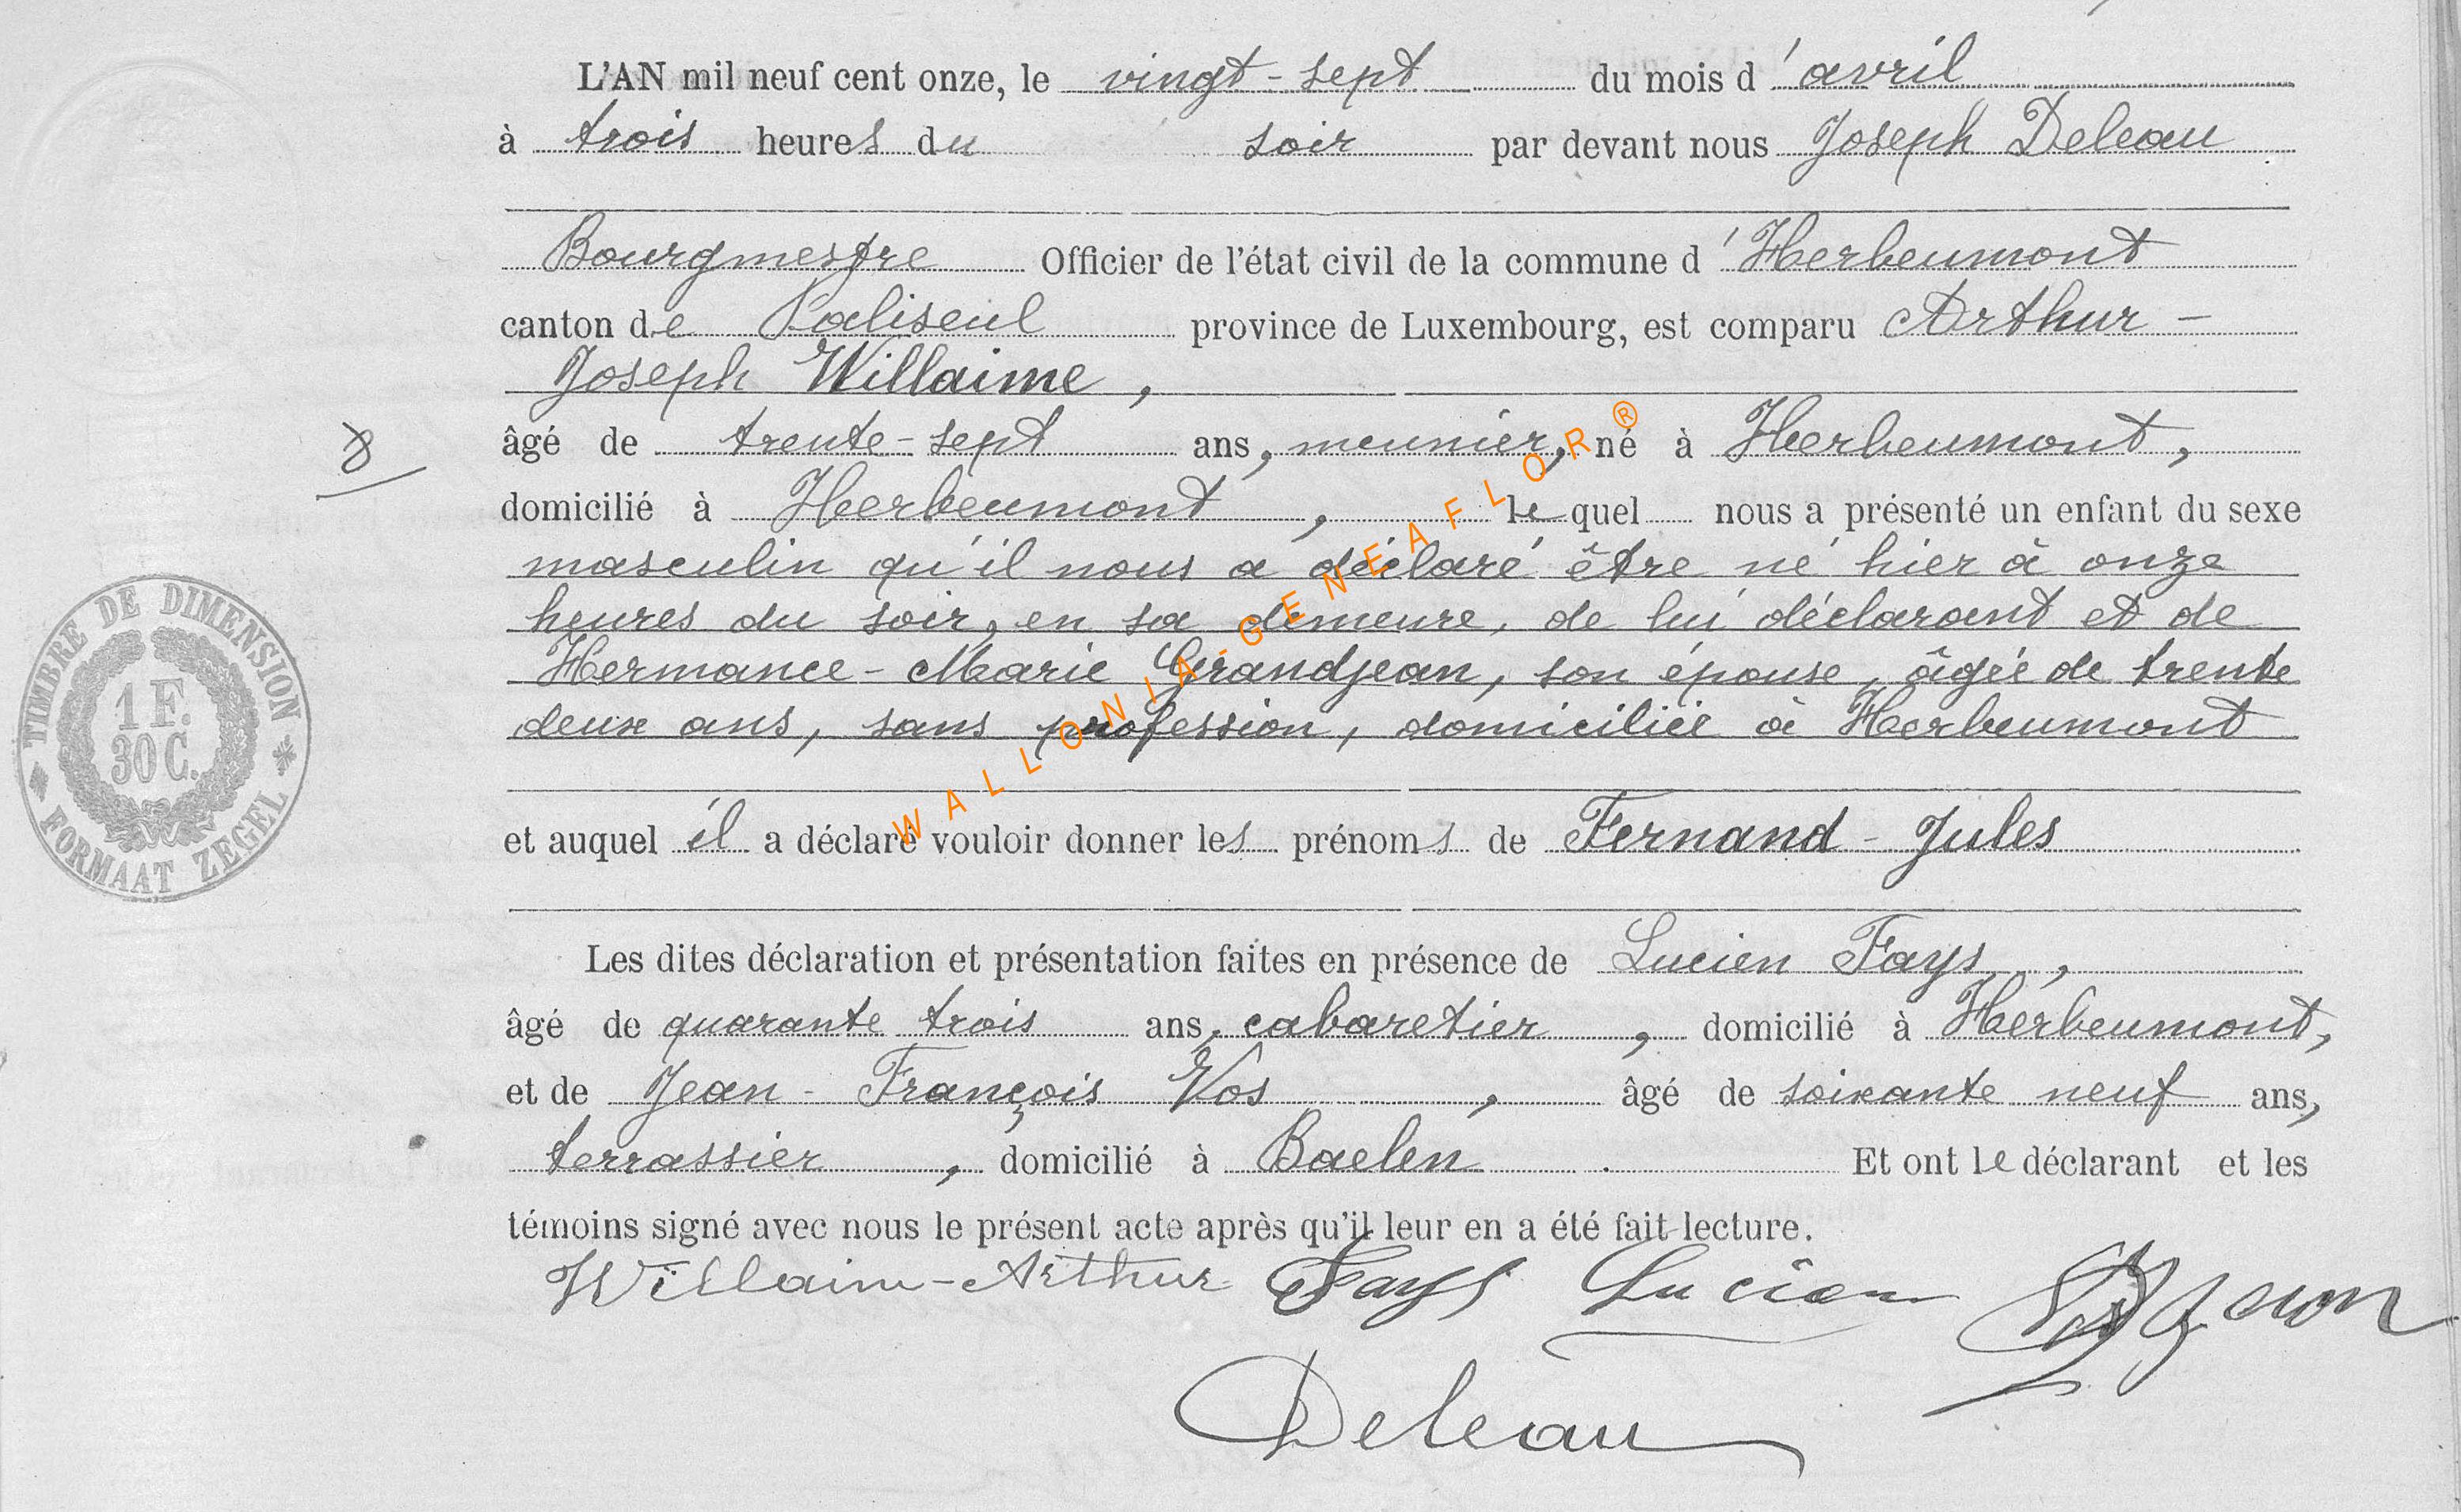 L'AN mil neuf cent onze, le vingt-sept du mois d'avril
à trois heures du soir par devant nous Joseph Deleau
Bourgmestre Officier de l'état civil de la commune d'Herbeumont
canton de Paliseul province de Luxembourg, est comparu Arthur-
Joseph Willaime,
âgé de trente-sept ans, meunier, né à Herbeumont,
8
domicilié à Herbeumont, lequel nous a présenté un enfant du sexe
masculin qu'il nous a déclaré être né hier à onze
heures du soir, en sa demeure, de lui déclarant et de
Hermance-Marie Grandjean, son épouse, âgée de trente
deux ans, sans profession, domiciliée à Herbeumont
TIMBRE DE DIMENSION
1 F.
30 C.
FORMAAT ZEGEL
WALLONIA-GENEAFLOR®
et auquel il a déclaré vouloir donner les prénoms de Fernand-Jules
Les dites déclaration et présentation faites en présence de Lucien Fays,
âgé de quarante trois ans, cabaretier, domicilié à Herbeumont,
et de Jean-François Vos, âgé de soixante neuf ans,
terrassier, domicilié à Baelen. Et ont le déclarant et les
témoins signé avec nous le présent acte après qu'il leur en a été fait lecture.
Willaime-Arthur Fays Lucien
Deleau